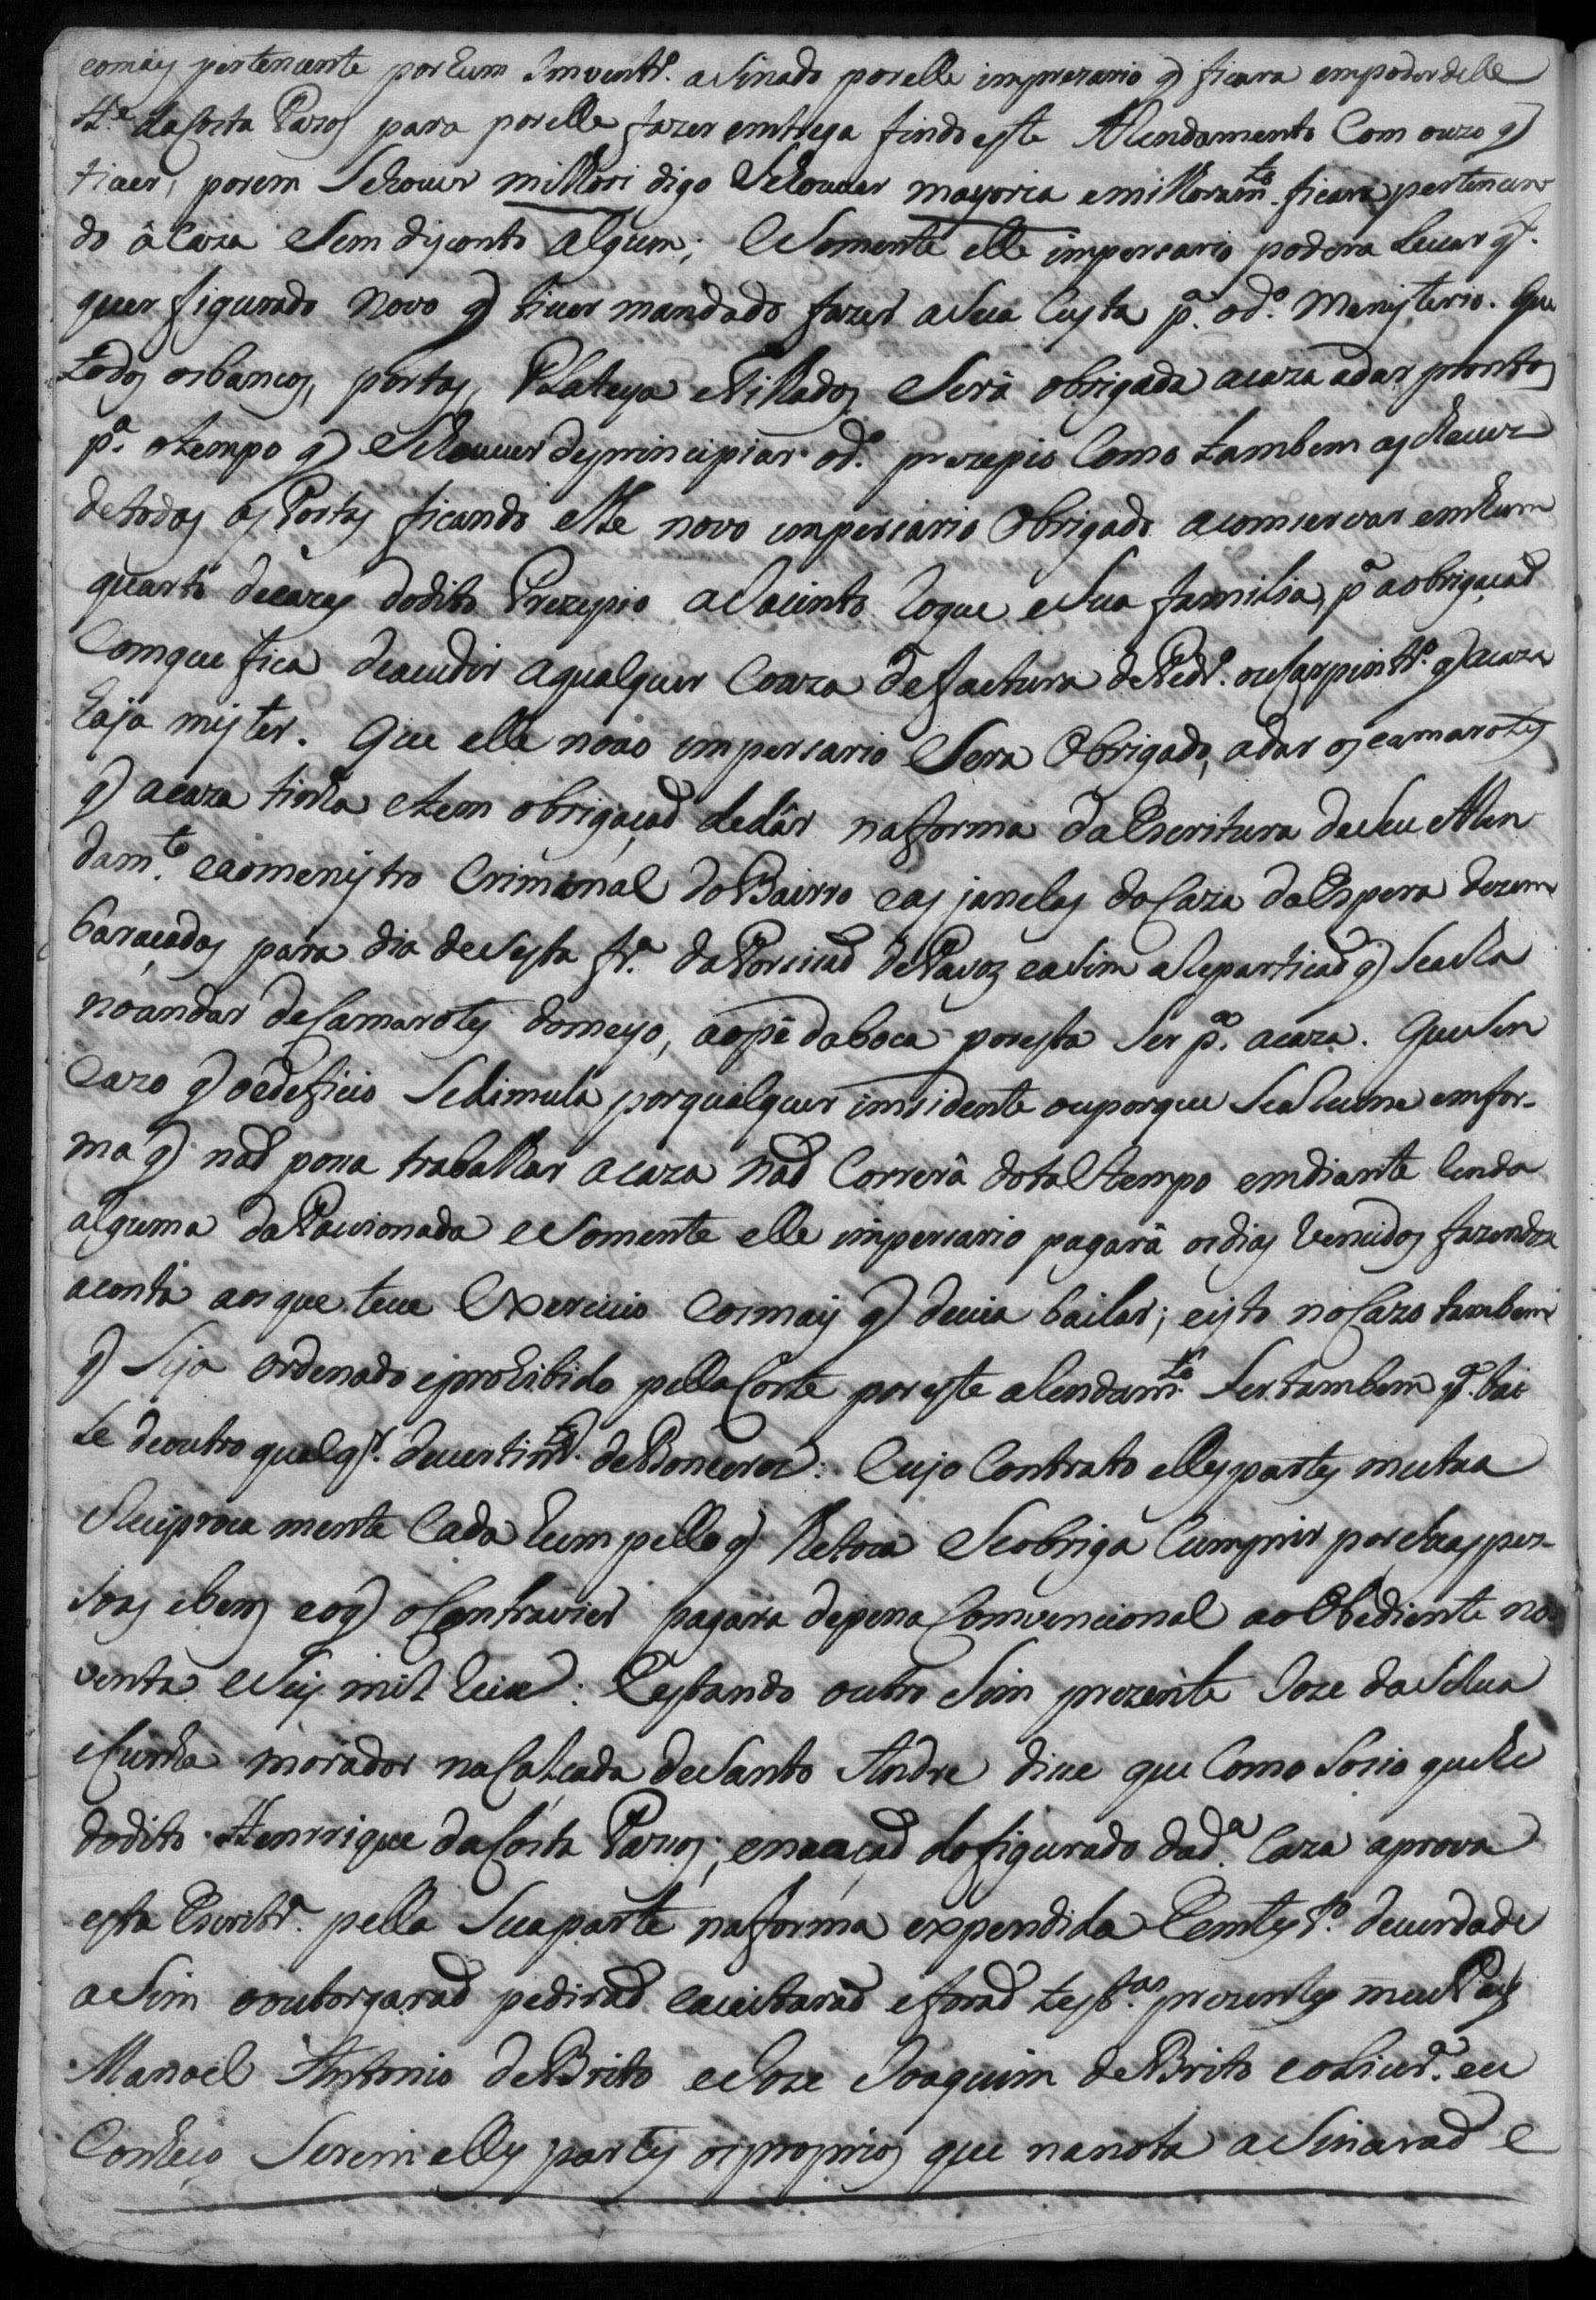 e o mais pertencente por hum Inventr.º asinado por elle imprezario q̃ ficara em poder delle
H.e da Costa Pasos para por elle fazer emtrega findo este Arendamento Com o uzo q̃
tiver, porem Se houver milhori digo Se houver mayoria e milhoram.to ficara pertencen
do â Caza Sem disconto algum; e Somente elle impersario podera Levar q.l
quer figurado Novo q̃ tiver mandado fazer a Sua Custa p.ª o d.º Menisterio. Que
todos os bancos, portas, Plateya e Tilhados Serâ obrigada a caza a dar prontos
p.ª o tempo q̃ Se houver de prinsipiar o d.º prezepio Como tambem as chaves
de todas as Portas ficando elle novo impersario Obrigado a comservar em hum
quarto de cazas do dito Prezepio a Jacinto Roque e Sua familia, p.ª a obrigaçaõ
Com que fica de acudir a qualquer Couza de factura de Pedr.º ou Carpintr.º q̃ a caza
haja mister. Que elle novo impersario Sera Obrigado, a dar os camarotes
q̃ a caza tinha e tem obrigaçaõ de dâr na forma da Escritura do Seu Aren
dam.to e ao menistro Criminal do Bairro e as janelas da Caza da Espera dezem
baraçadas para dia de Sesta fr.ª da Porcissaõ de Pasos e asim a Reparticaõ q̃ Se acha
no andar de Camarotes do meyo, ao pê da boca por esta Ser p.ª a caza. Que Sem
Cazo q̃ o edeficio Se dimula por qualquer insidente ou porque Se aRuine em for-
ma q̃ naõ posa trabalhar a caza naõ Correrâ do tal tempo em diante Renda
alguma da Pacsionada e Somente elle impersario pagarâ os dias vencidos fazendose
a conta aos que teve Exercicio e os mais q̃ devia bailar; e isto no Cazo tambem
q̃ Seja ordenado e prohibido pella Corte por este aRendam.to Ser tambem p.ª bai
le de outro qualq.r devertim.to de Bonecros: Cujo Contrato elles partes mutua
e Reciproca mente Cada hum pello q̃ lhe toca Se obriga Cumprir por Suas pes-
soas e bens e o q̃ o Contravier pagara de pena Convencional ao Obediente no
venta e Seis mil Reis: E estando outro Sim prezente Joze da Silva
e Cunha morador na Calçada de Santo Andre disse que Como Socio que he
do dito Henrrique da Costa Pasos, em acçaõ do figurado da d.ª Caza aprova
esta Escritr.ª pella Sua parte na forma expendida E em test.º de verdade
asim o outorgaraõ pediraõ e aceitaraõ e foraõ test.as prezentes meu Pay
Manoel Antonio de Brito e Joze Joaquim de Brito e o Licd.º eu
Conheço Serem elles partes os proprios que na nota asinaraõ e